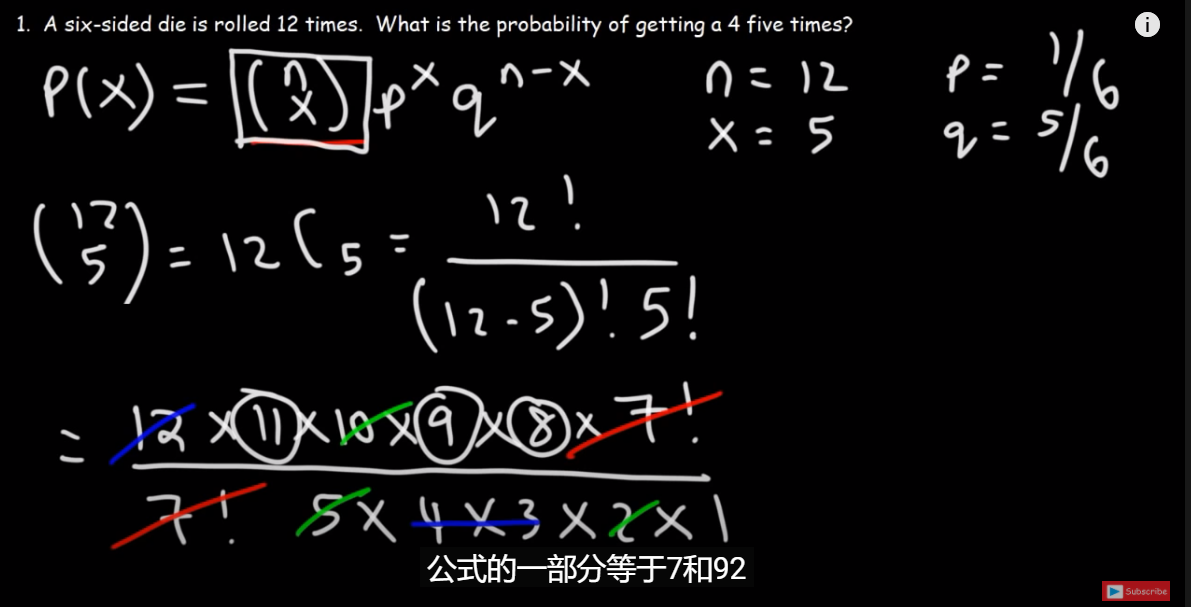 1. A six-sided die is rolled 12 times. What is the probability of getting a 4 five times?
P(x) = (n x) p^x q^(n-x)
n = 12
x = 5
p = 1/6
q = 5/6
(12 5) = 12 C 5 = 12! / (12-5)! 5!
= 12 x 11 x 10 x 9 x 8 x 7!
7! 5 x 4 x 3 x 2 x 1
公式的一部分等于7和92
Subscribe